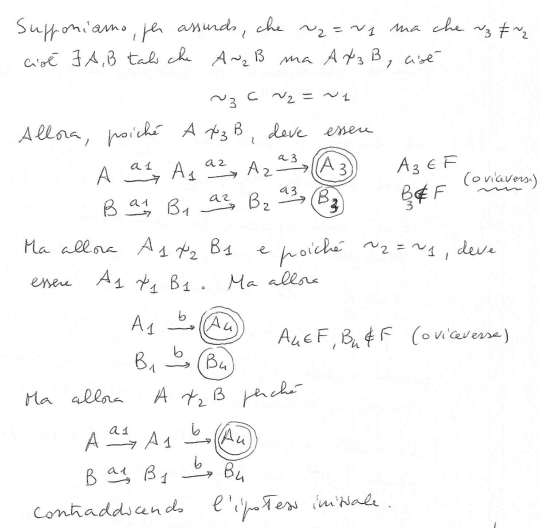 Supponiamo, per assurdo, che ~₂ = ~₁ ma che ~₃ ≠ ~₂
cioè ∃ A,B tali che A ~₂ B ma A ≁₃ B, cioè
~₃ ⊂ ~₂ = ~₁
Allora, poiché A ≁₃ B, deve essere
A —a1→ A₁ —a2→ A₂ —a3→ A₃ A₃ ∈ F
B —a1→ B₁ —a2→ B₂ —a3→ B₃ B₃ ∉ F (o viceversa)
Ma allora A₁ ≁₂ B₁ e poiché ~₂ = ~₁, deve
essere A₁ ≁₁ B₁. Ma allora
A₁ —b→ A₄ A₄ ∈ F, B₄ ∉ F (o viceversa)
B₁ —b→ B₄
Ma allora A ≁₂ B perché
A —a1→ A₁ —b→ A₄
B —a1→ B₁ —b→ B₄
contraddicendo l'ipotesi iniziale.